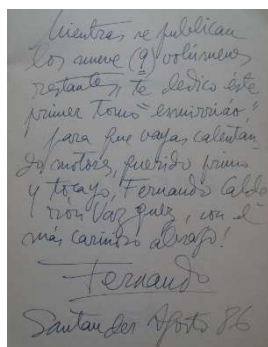 Mientras se publican
los nueve (9) volúmenes
restantes, te dedico éste
primer tomo "esmirriao,"
para que vayas calentan-
do motores, querido primo
y tocayo, Fernando Calde
rón Vazquez, con el
más cariñoso abrazo!
Fernando
Santander Agosto 86